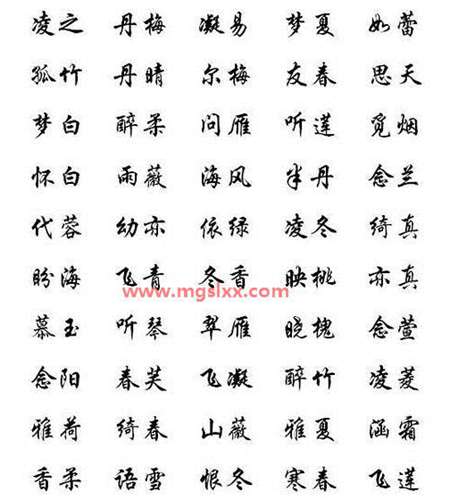 凌之 丹梅 凝易 梦夏 如蕾
孤竹 丹晴 尔梅 友春 思天
梦白 醉柔 问雁 听莲 觅烟
怀白 雨薇 海风 半丹 念兰
代蓉 幼亦 依绿 凌冬 绮真
盼海 飞青 冬香 映桃 亦真
www.mgslxx.com
慕玉 听琴 翠雁 晓槐 念萱
念阳 春芙 飞凝 醉竹 凌菱
雅荷 绮春 山薇 雅夏 涵霜
香柔 语雪 恨冬 寒春 飞莲